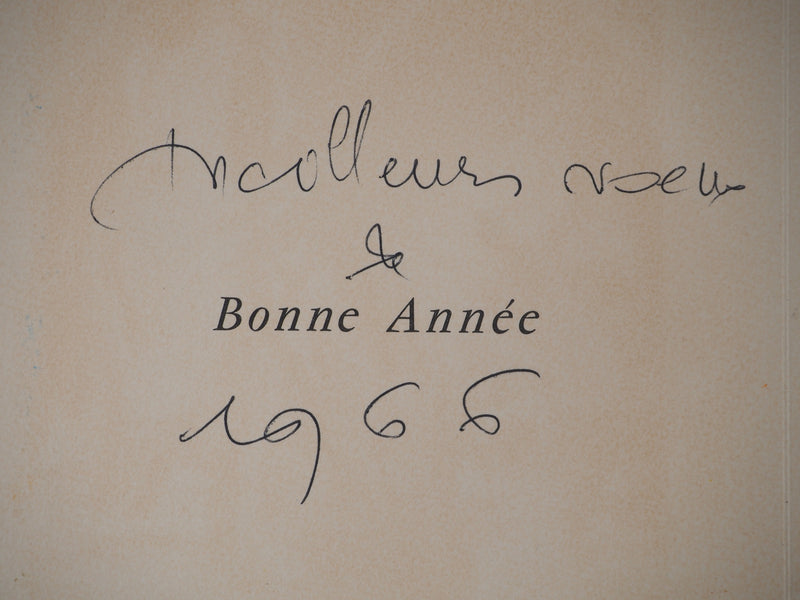 Meilleurs voeux
de
Bonne Année
1966